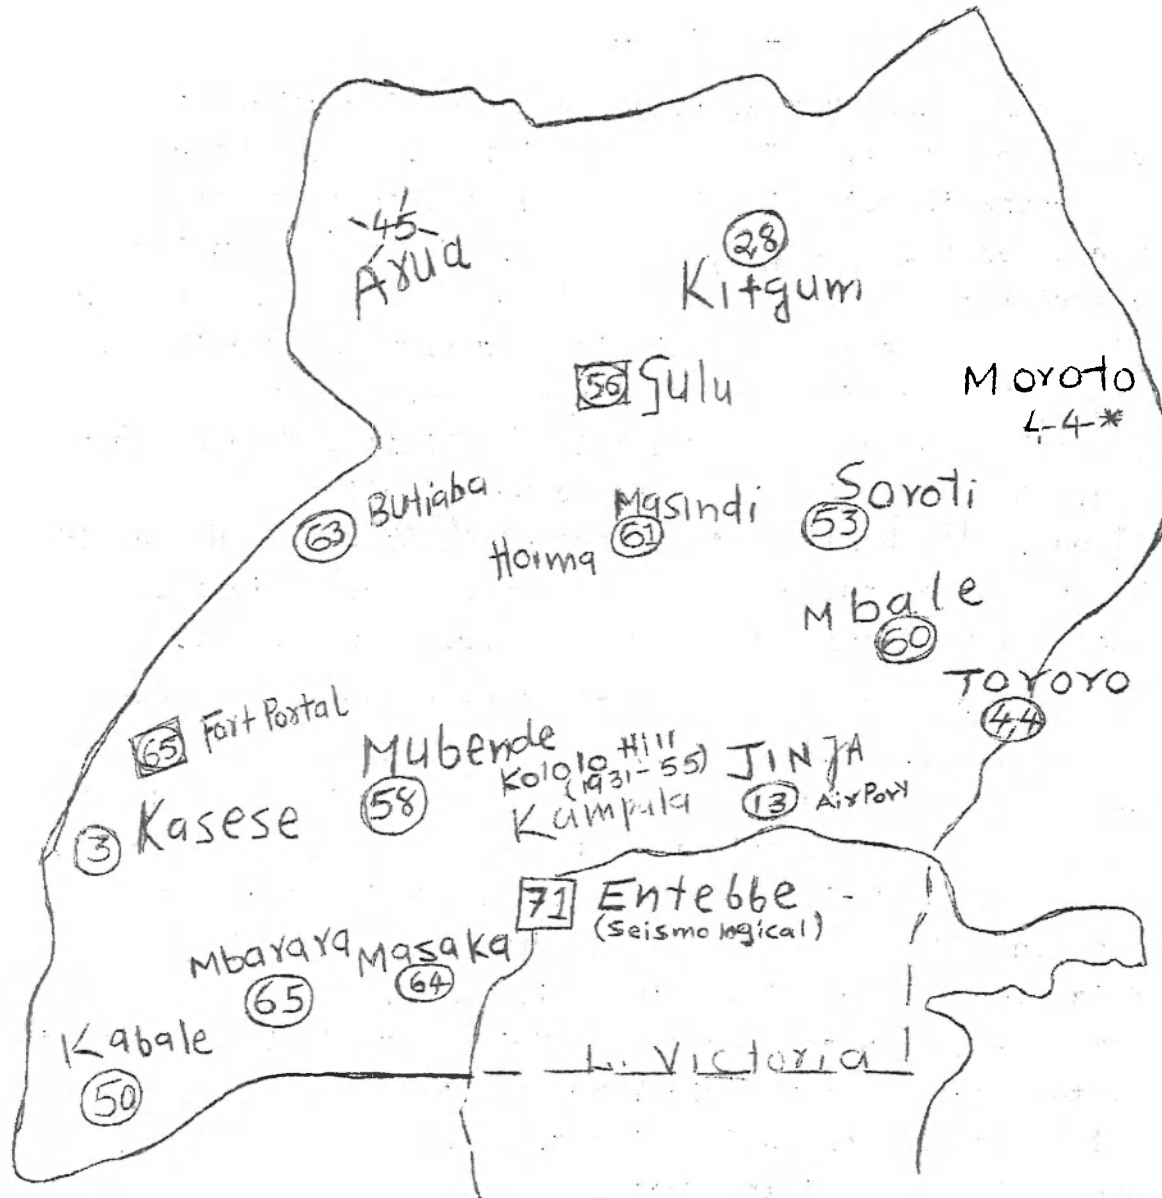 45
Arua
28
Kitgum
56 Gulu
Moroto
44*
Butiaba
63
Masindi
61
Hoima
Soroti
53
Mbale
60
Tororo
44
65 Fort Portal
Mubende
58
Kololo Hill
(1931-55)
Kampala
JINJA
13 AirPort
3 Kasese
71 Entebbe
(Seismological)
Mbarara
65
Masaka
64
Kabale
50
L. Victoria